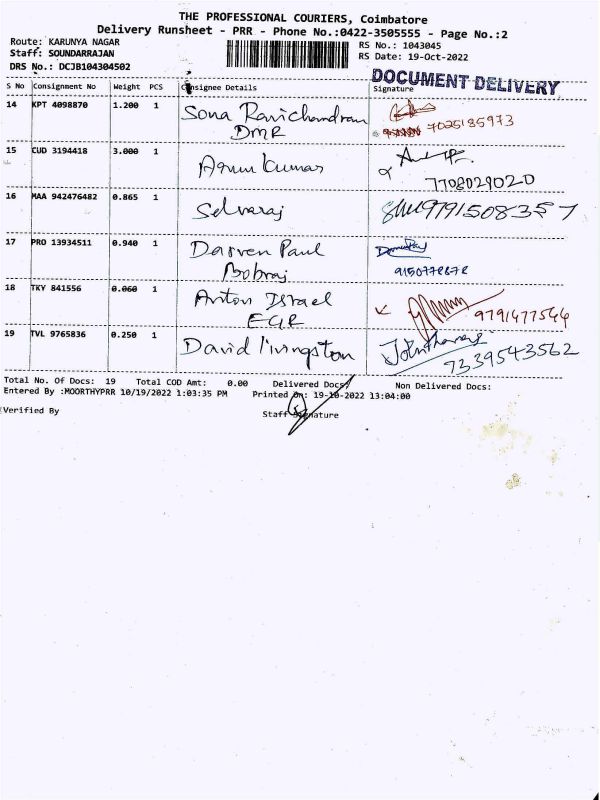 THE PROFESSIONAL COURIERS, Coimbatore
Delivery Runsheet - PRR - Phone No.:0422-3505555 - Page No.:2
Route: KARUNYA NAGAR
RS No.: 1043045
Staff: SOUNDARRAJAN
RS Date: 19-Oct-2022
DRS No.: DCJB104304502
DOCUMENT DELIVERY
S No Consignment No Weight PCS Consignee Details Signature
14 KPT 4098870 1.200 1 Sona Ravichandran
DMR 7025185973
15 CUD 3194418 3.000 1 Arun Kumar
7708029020
16 MAA 942476482 0.865 1 Selvaraj 9791508357
17 PRO 13934511 0.940 1 Darven Paul
18 TKY 841556 0.060 1 Anton Israel
EGR 9791477544
19 TVL 9765836 0.250 1 David livingston
7339543562
Total No. Of Docs: 19 Total COD Amt: 0.00 Delivered Docs: Non Delivered Docs:
Entered By :MOORTHYPRR 10/19/2022 1:03:35 PM Printed On: 19-10-2022 13:04:00
Verified By Staff Signature